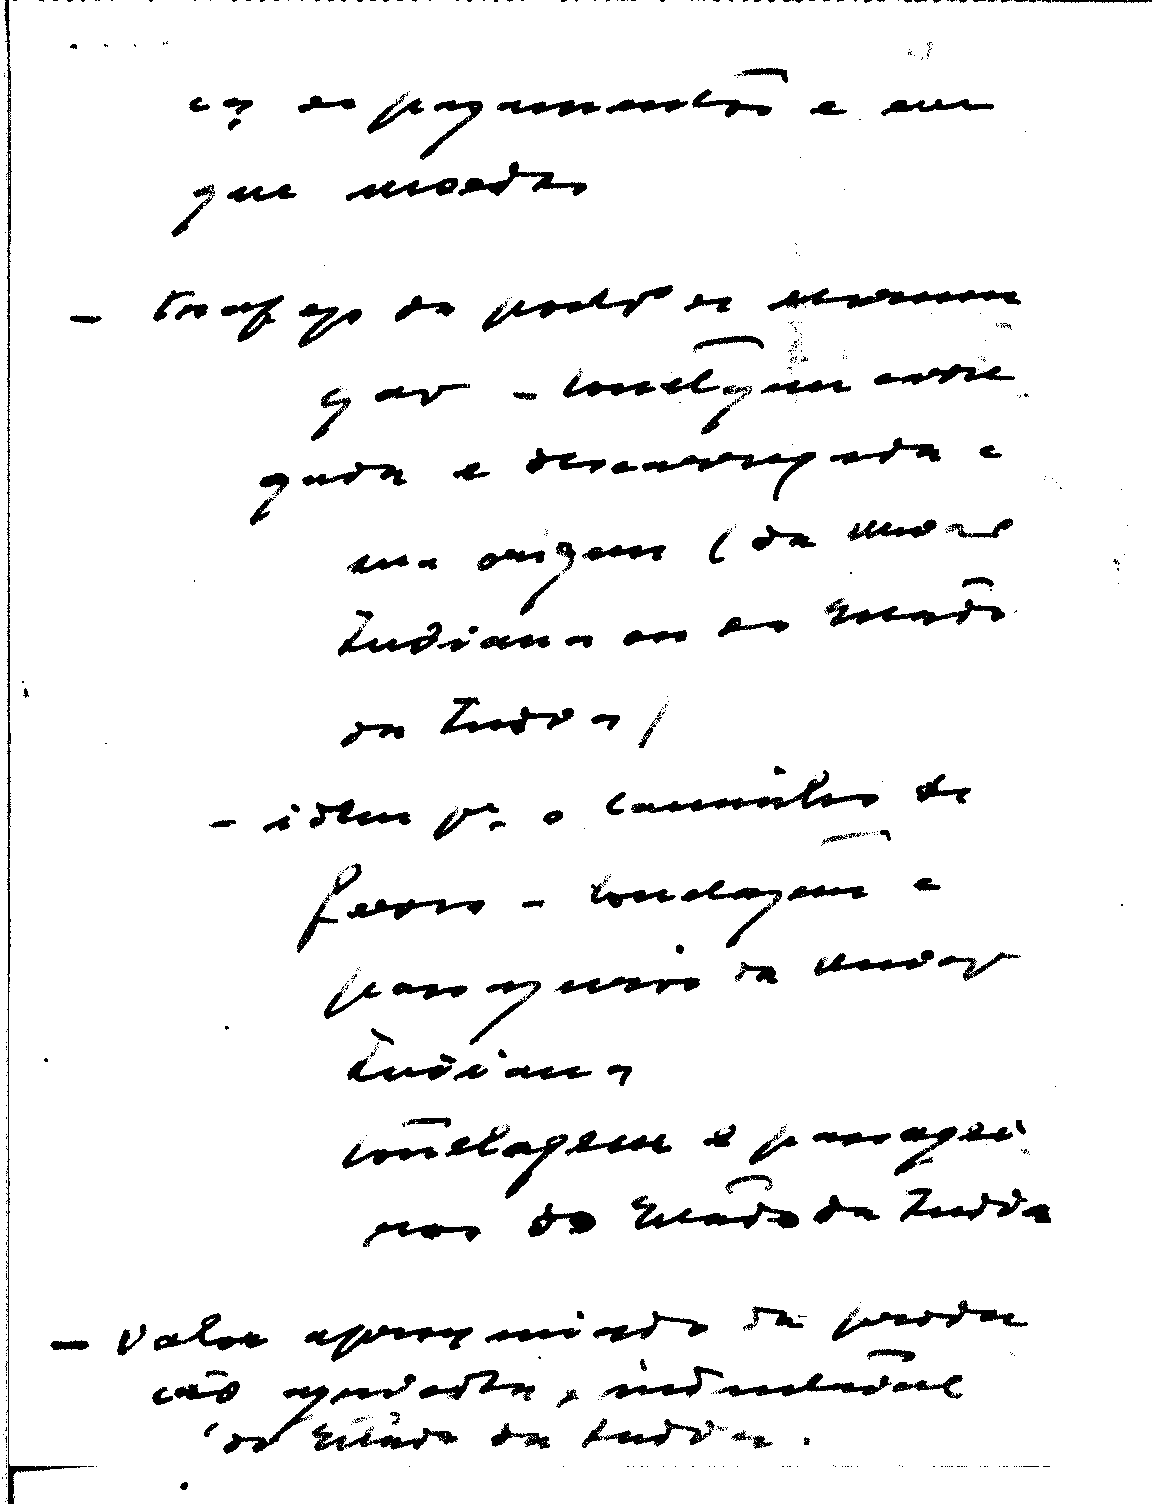 ça de pagamentos e em
que moeda
- Trafego do porto de Mormu
gão - tonelagem carre
gada e descarregada e
sua origem (da União
Indiana ou do Estado
da India)
- idem pª o caminho de
ferro - tonelagem e
passageiros da União
Indiana
tonelagem e passagei
ros do Estado da India
- Valor aproximado da produ
ção agricola, industrial
do Estado da India.